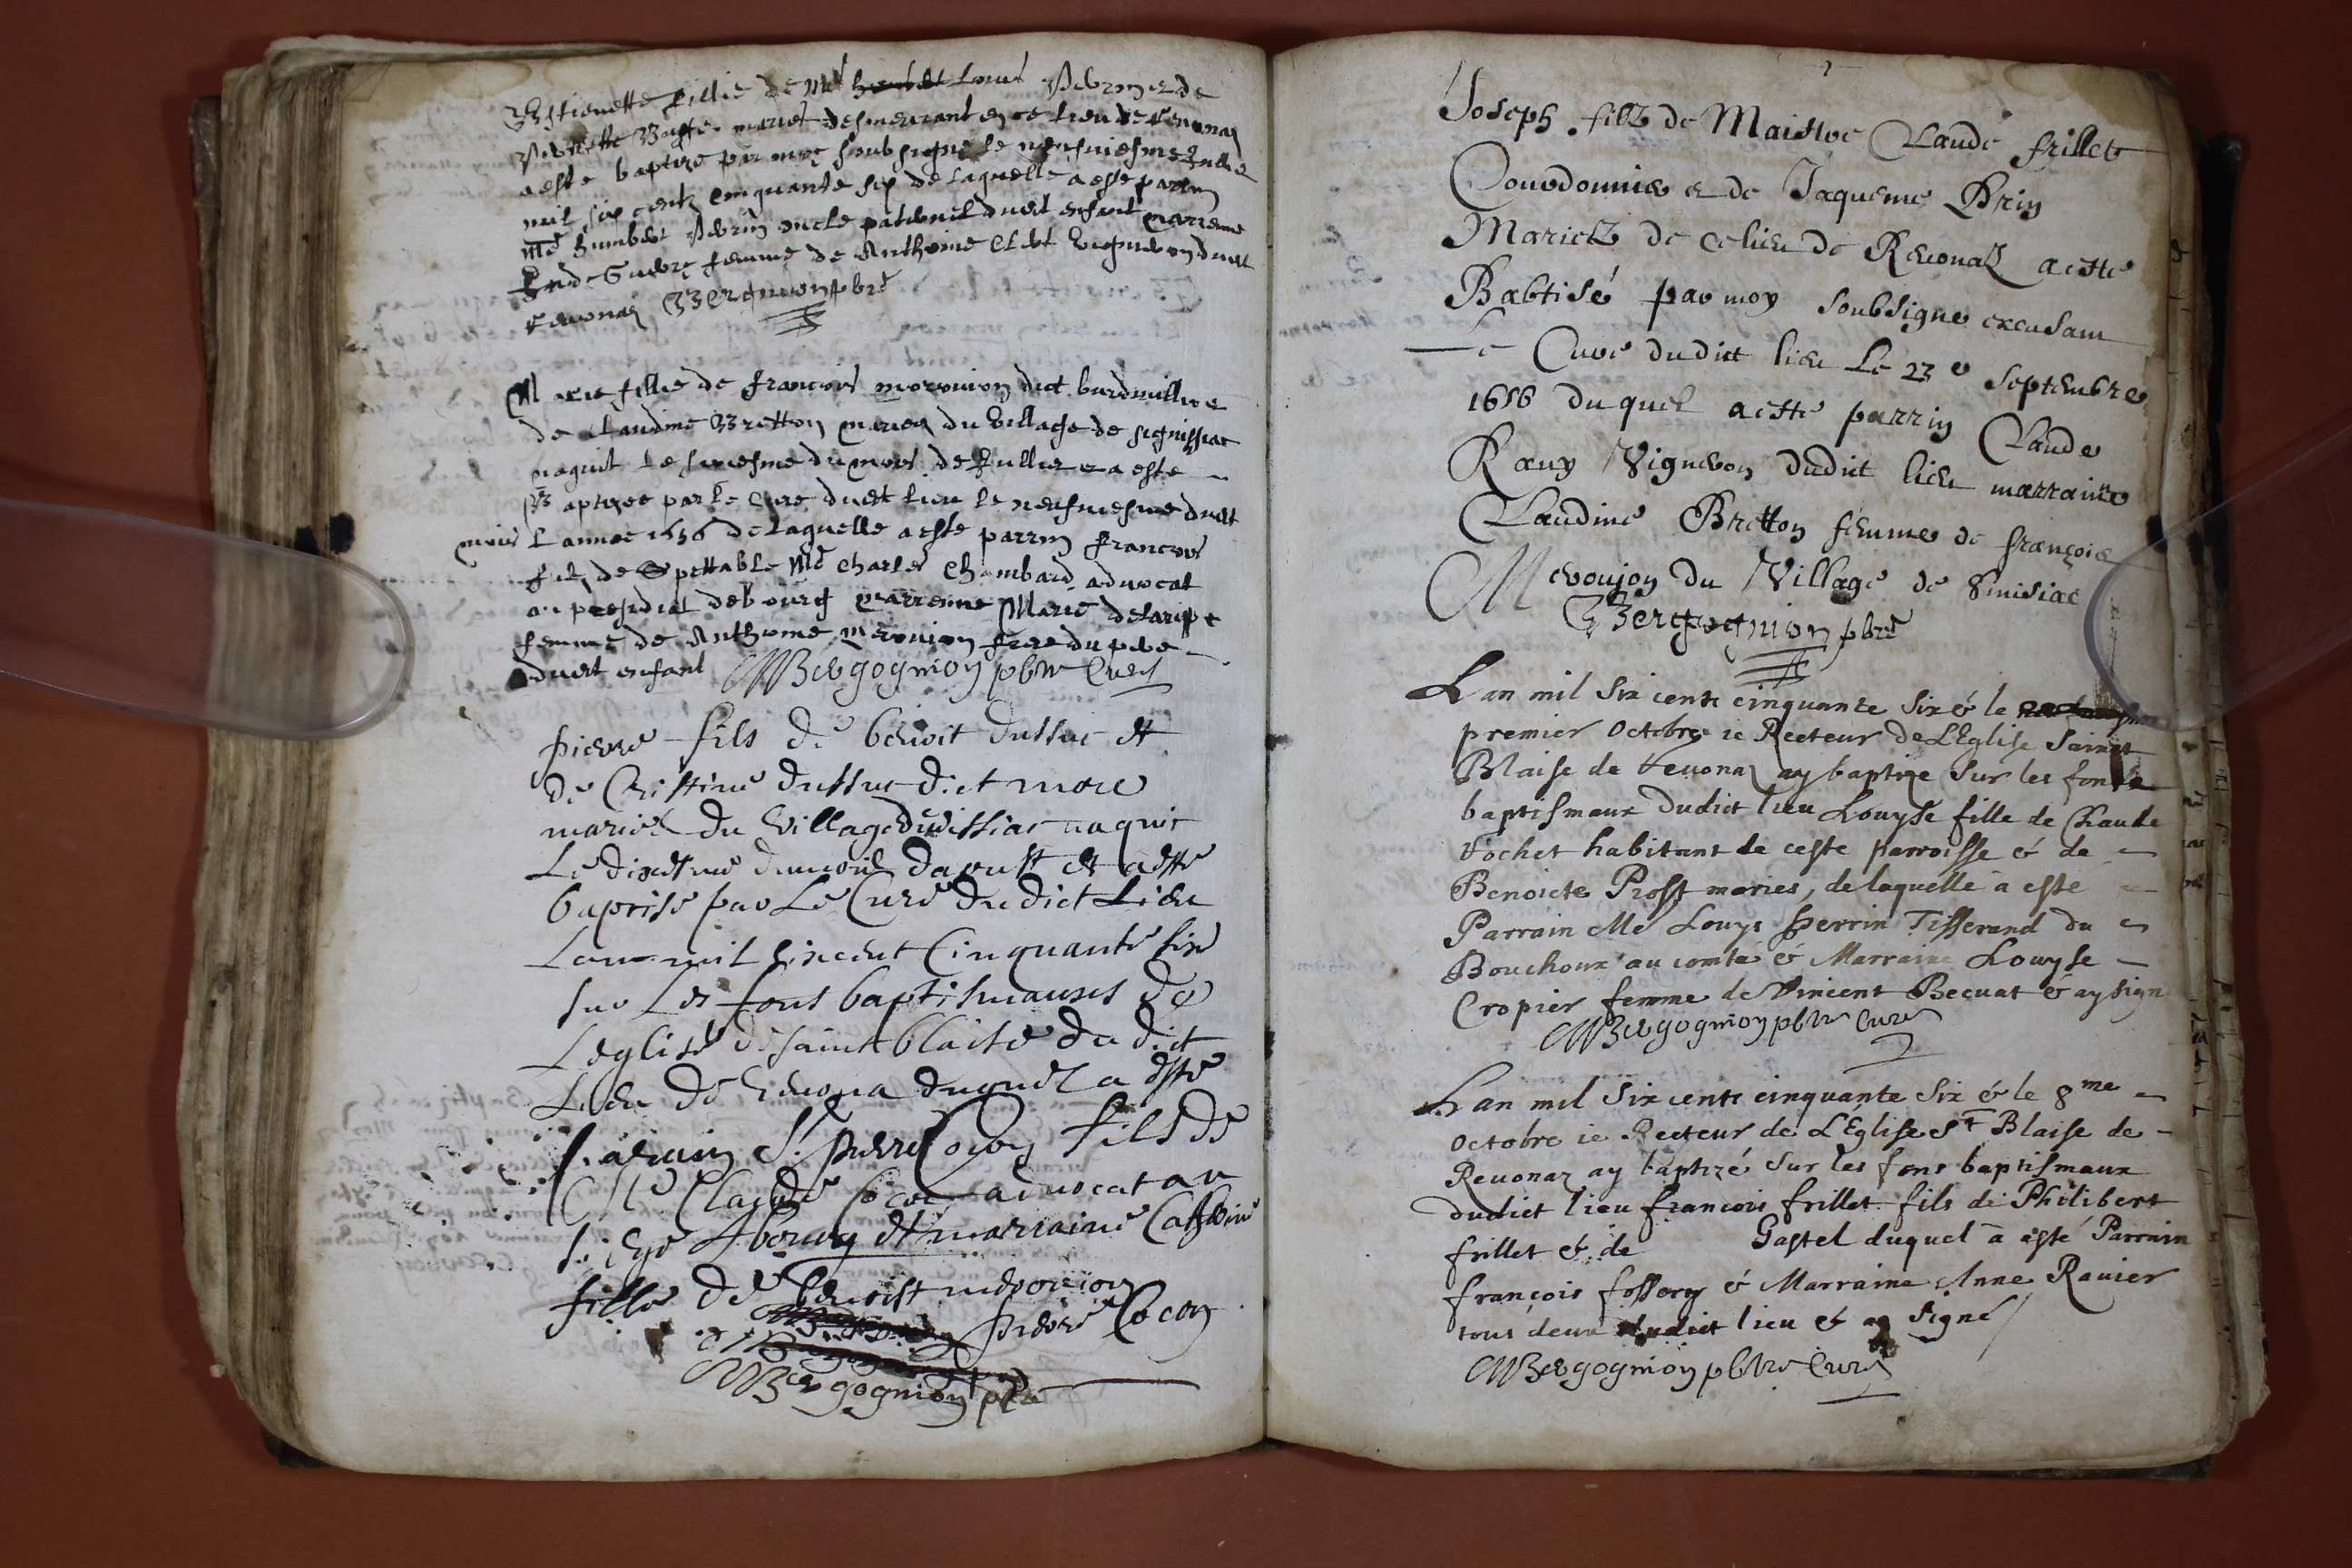 Estienette fillie de Me Louis Perrin et de
mariet desmeurant en ce lieu de Revonaz
a este baptize par moy soubsigne le neufviesme Jullie
mil six centz cinquante six de laquelle a este parrin
Me humbert Perrin oncle paternel dudit enfant marrenne
femme de Anthoine dudit
Revonaz Bergognion pbre
Marie fillie de francois morouion dict burdmillie et
de Claudine Bretton maries du village de Senissiac
naquit le sixiesme du mois de Jullie et a este
Baptizee par le Cure dudit lieu le neufviesme dudit
mois L annee 1656 de laquelle a este parrin francois
filz de Spettable Me Charles Chambard advocat
au presidial de bourg marrenne Marie delaripe
femme de Anthoine morouion frere du pere
dudit enfant M Bergognion pbre Curé
pierre fils de benoit dussuc et
de Cristine dussuc dict more
mariés du village de naquit
Le dixesme du mois d aoust et a esté
baptisé par Le Curé du dict Lieu
Lan mil sixcent Cinquante six
sur Les fons baptismauxs de
Leglise de saint blaise du dict
Lieu de Revona duquel a esté
parrain Sr. pierre Cocon fils de
Me Claude Cocon advocat au
siege de bourg et marraine Catherine
fille de benoist merouion
pierre Cocon
M Bergognion pbre
Joseph fillz de Maistre Claude frillet
Courdonnier et de Jaqueme Prin
Marietz de ce lieu de Revonaz a esté
Babtisé par moy soubsigne excusant
Le Curé dudict lieu Le 23e Septembre
1656 duquel a esté parrin Claude
Raux Vigneron dudict lieu marraine
Claudine Bretton femme de françois
Meroujon du Village de Sinisiac
Bergognion pbre
Lan mil six cents cinquante six & le
premier Octobre ie Recteur de LEglise Sainct
Blaise de Revonaz ay baptize sur les fonts
baptismaux dudict lieu Louyse fille de Claude
Vochet habitant de ceste parroisse & de
Benoicte Prost maries, de laquelle à esté
Parrain Me Louys Perrin Tisserand du
Bouchoux au comté & Marraine Louyse
Cropier femme de Vincent Becuat & ay signé
M Bergognion pbre Curé
Lan mil six cents cinquante six & le 8me
Octobre ie Recteur de L'Eglise St Blaise de
Revonaz ay baptizé sur les fons baptismaux
dudict lieu francois frillet fils de Philibert
frillet & de Gastel duquel à esté Parrain
françois fossery & Marraine Anne Ravier
tous deux dudict lieu & ay signé
M Bergognion pbre Curé